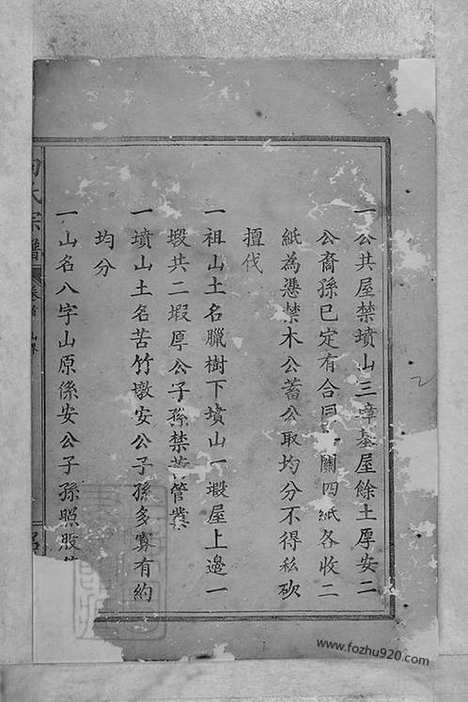 一公共屋禁墳山三嶂基屋餘土厚安二
公裔孫已定有合同鬮四紙各收二
紙為憑禁木公蓄公取均分不得私砍
擅伐
一祖山土名臘樹下墳山一嘏屋上邊一
嘏共二嘏厚公子孫禁蓄管業
一墳山土名苦竹墩安公子孫多寡有約
均分
一山名八字山原係安公子孫照股
氏宗譜
卷首
www.fozhu920.com